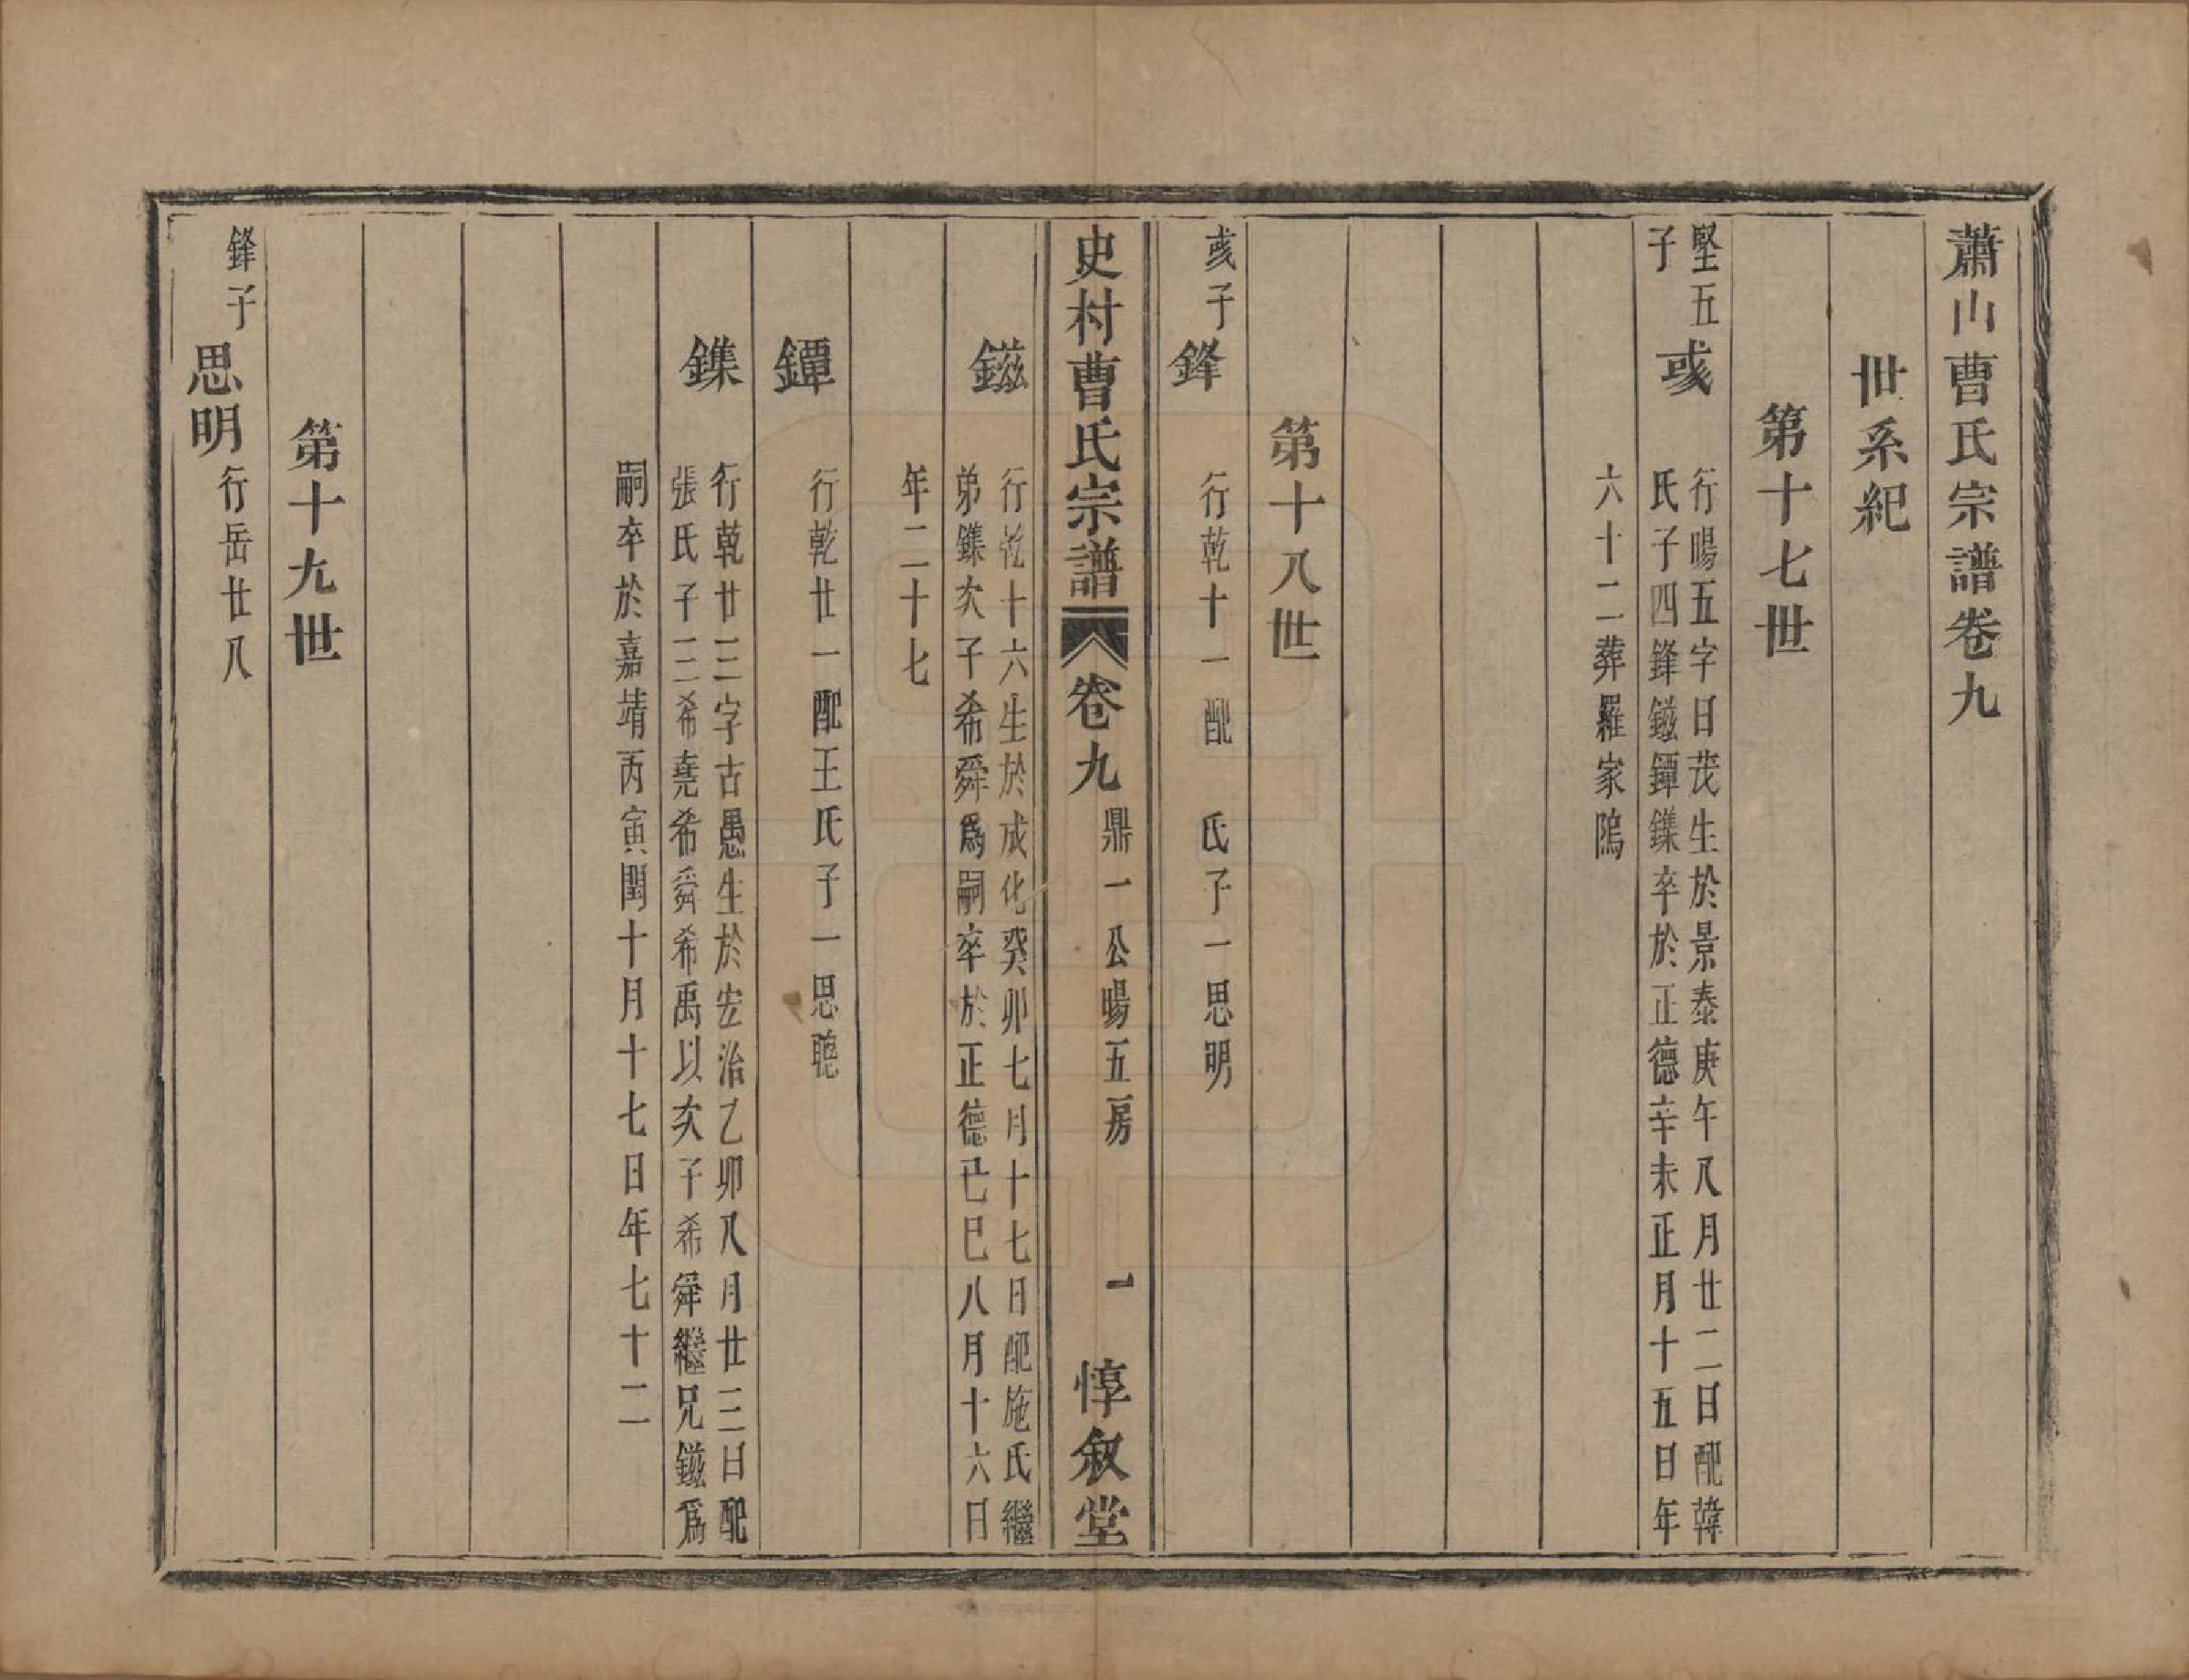 蕭山曹氏宗譜卷九
世系紀
第十七世
堅五
子
彧
行暘五字日茂生於景泰庚午八月廿二日配韓
氏子四鋒鎡鐔鏶卒於正德辛未正月十五日年
六十二葬羅家隖
第十八世
彧子
鋒
行乾十一配　氏子一思明
史村曹氏宗譜
卷九
鼎一公暘五房
一
惇叙堂
鎡
行乾十六生於成化癸卯七月十七日配施氏繼
弟鏶次子希舜爲嗣卒於正德己巳八月十六日
年二十七
鐔
行乾廿一配王氏子一思聰
鏶
行乾廿三字古愚生於宏治乙卯八月廿三日配
張氏子三希堯希舜希禹以次子希舜繼兄鎡爲
嗣卒於嘉靖丙寅閏十月十七日年七十二
第十九世
鋒子
思明
行岳廿八